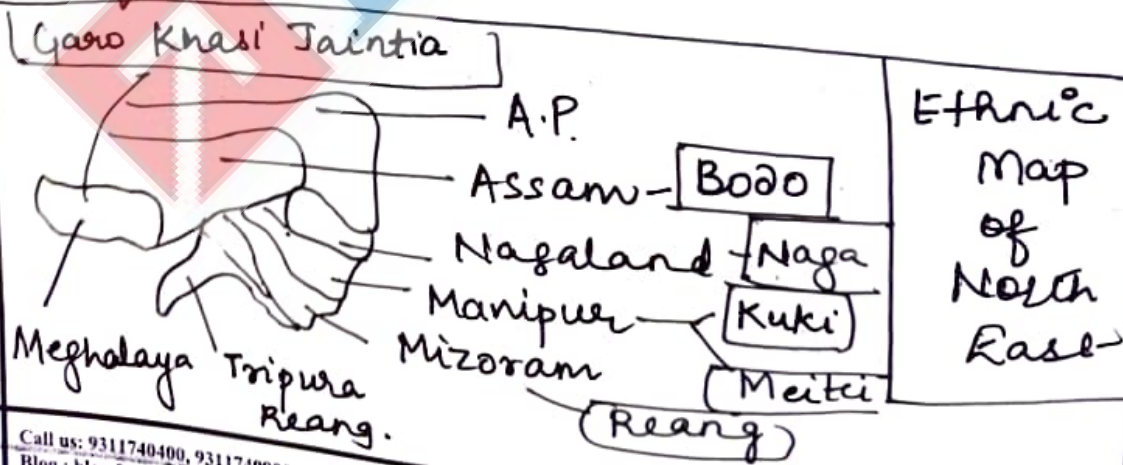 Garo Khasi Jaintia
A.P.
Assam - Bodo
Nagaland - Naga
Manipur - Kuki
Meitei
Mizoram
Reang
Meghalaya
Tripura
Reang.
Ethnic
Map
of
North
East
Call us: 9311740400,